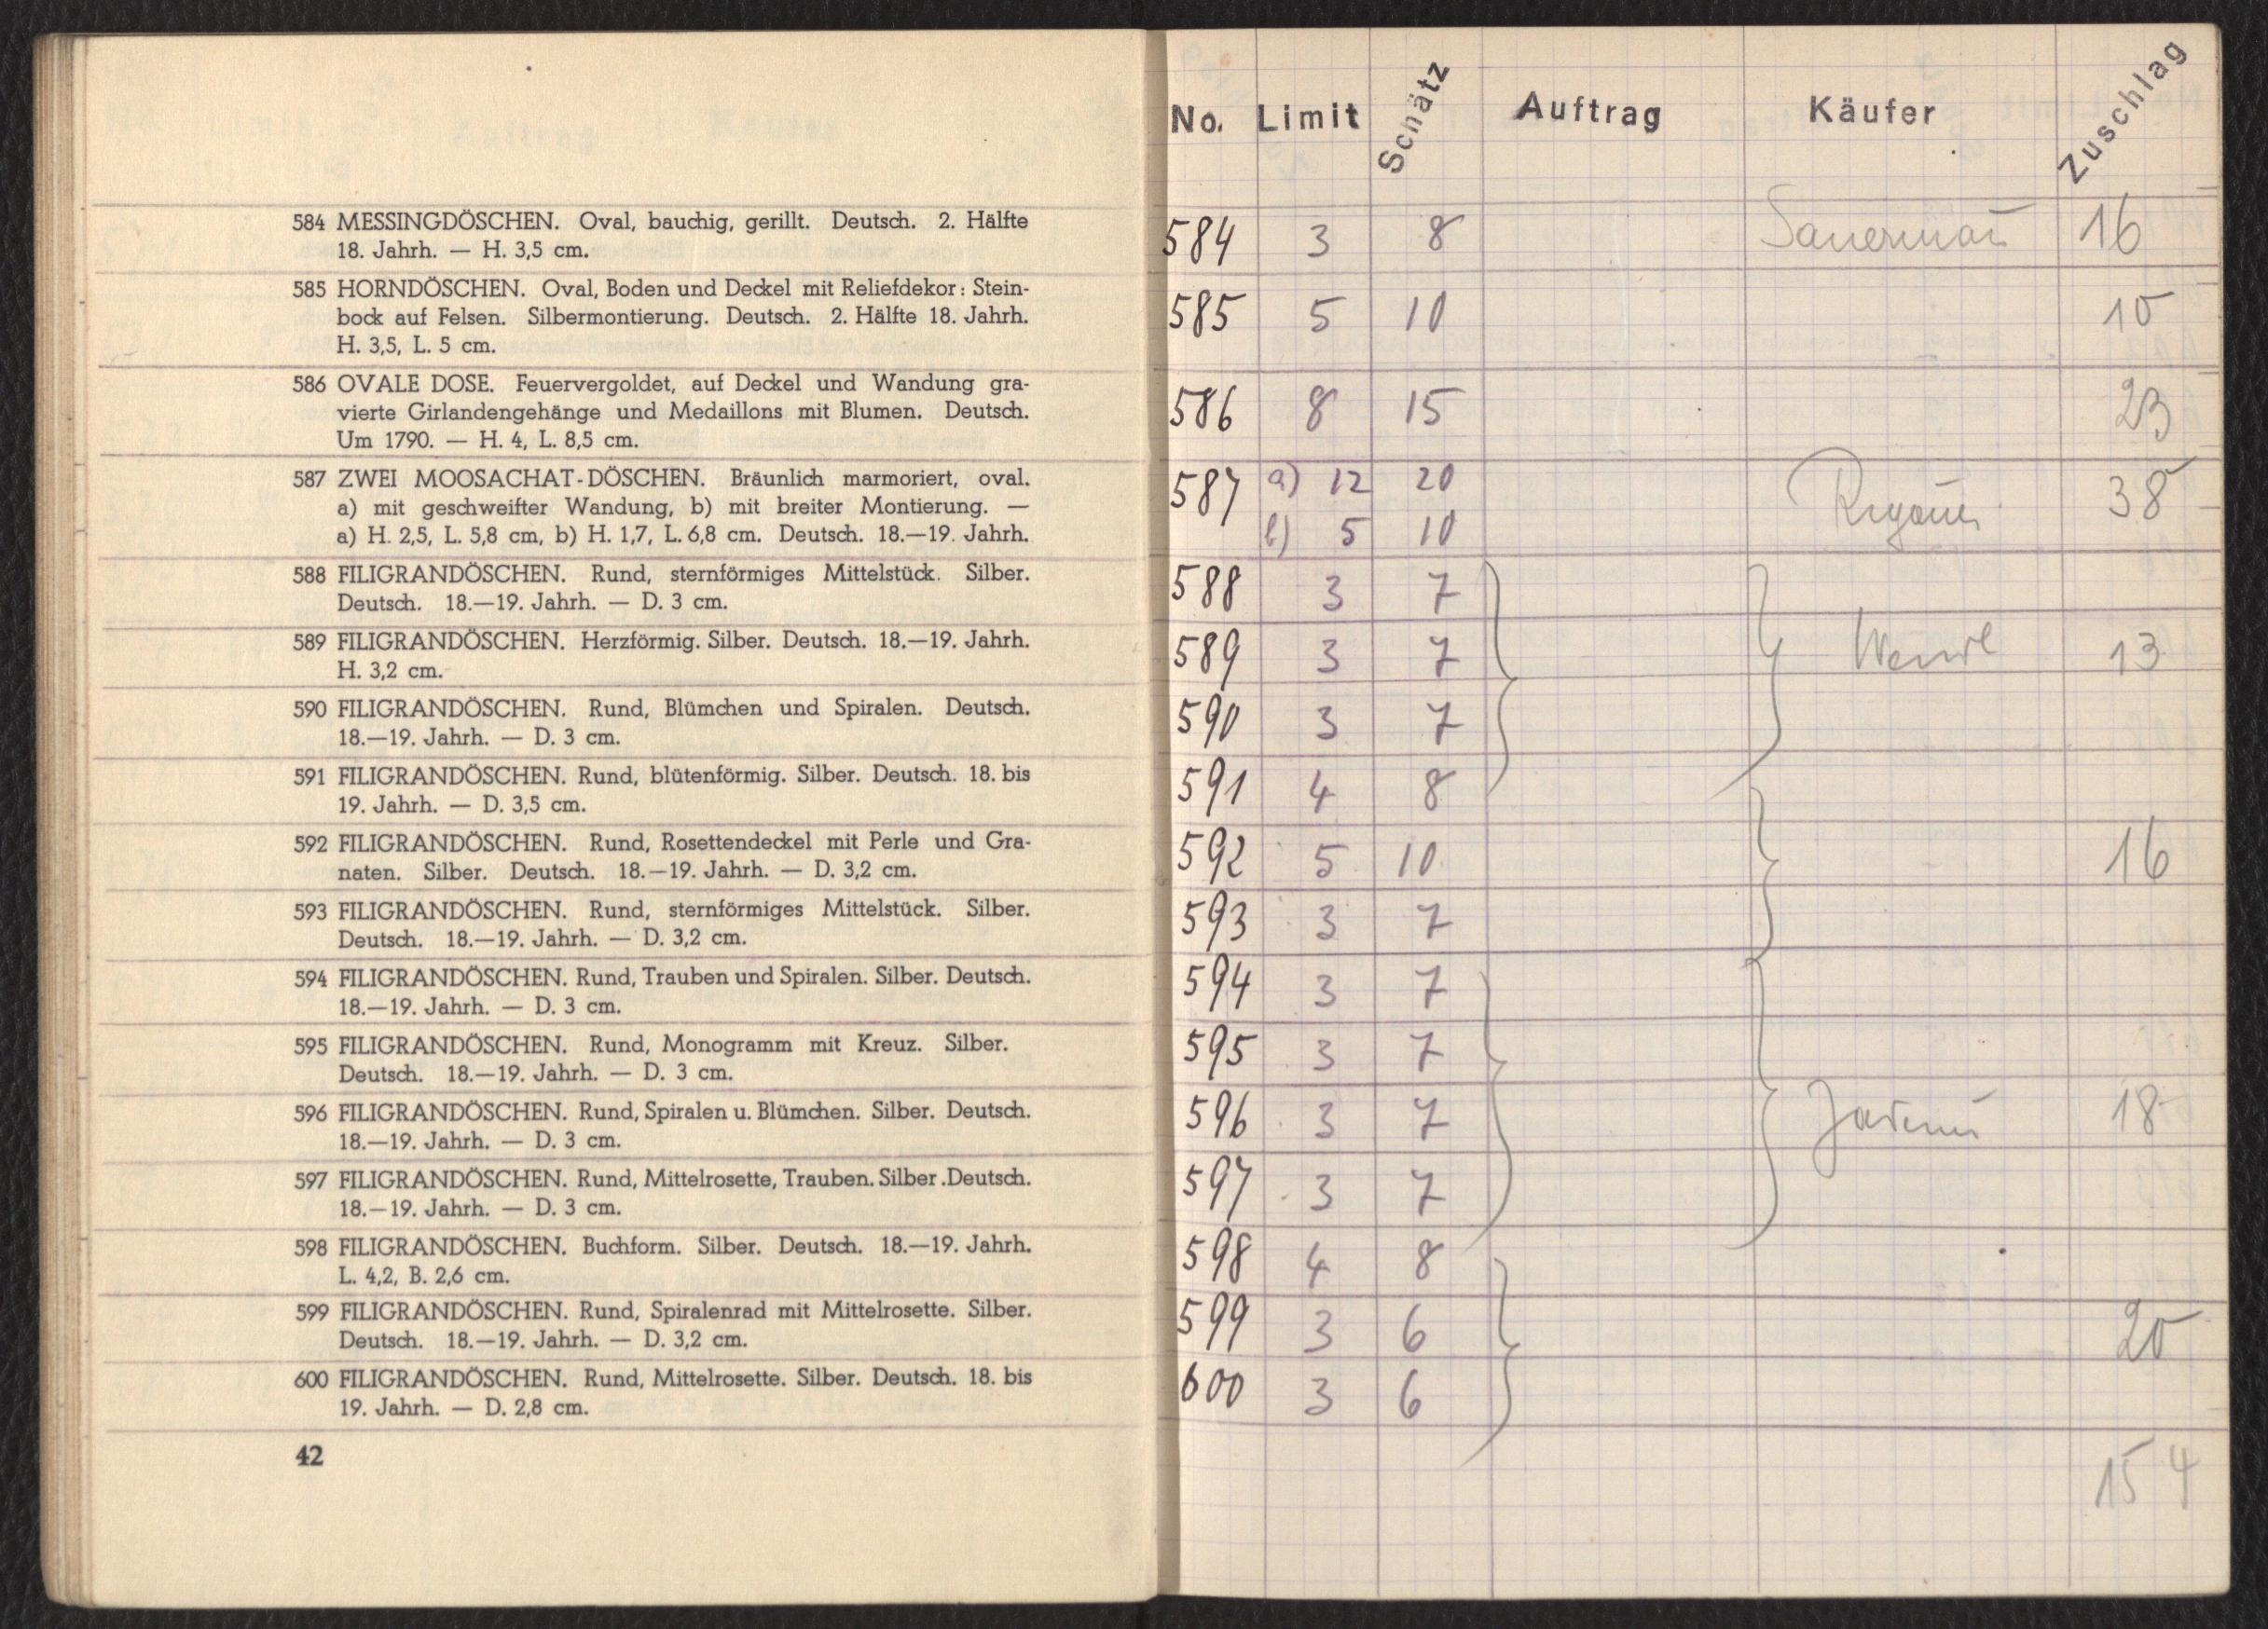 584 MESSINGDÖSCHEN. Oval, bauchig, gerillt. Deutsch. 2. Hälfte
18. Jahrh. — H. 3,5 cm.
585 HORNDÖSCHEN. Oval, Boden und Deckel mit Reliefdekor: Stein-
bock auf Felsen. Silbermontierung. Deutsch. 2. Hälfte 18. Jahrh.
H. 3,5, L. 5 cm.
586 OVALE DOSE. Feuervergoldet, auf Deckel und Wandung gra-
vierte Girlandengehänge und Medaillons mit Blumen. Deutsch.
Um 1790. — H. 4, L. 8,5 cm.
587 ZWEI MOOSACHAT-DÖSCHEN. Bräunlich marmoriert, oval.
a) mit geschweifter Wandung, b) mit breiter Montierung. —
a) H. 2,5, L. 5,8 cm, b) H. 1,7, L. 6,8 cm. Deutsch. 18.—19. Jahrh.
588 FILIGRANDÖSCHEN. Rund, sternförmiges Mittelstück. Silber.
Deutsch. 18.—19. Jahrh. — D. 3 cm.
589 FILIGRANDÖSCHEN. Herzförmig. Silber. Deutsch. 18.—19. Jahrh.
H. 3,2 cm.
590 FILIGRANDÖSCHEN. Rund, Blümchen und Spiralen. Deutsch.
18.—19. Jahrh. — D. 3 cm.
591 FILIGRANDÖSCHEN. Rund, blütenförmig. Silber. Deutsch. 18. bis
19. Jahrh. — D. 3,5 cm.
592 FILIGRANDÖSCHEN. Rund, Rosettendeckel mit Perle und Gra-
naten. Silber. Deutsch. 18.—19. Jahrh. — D. 3,2 cm.
593 FILIGRANDÖSCHEN. Rund, sternförmiges Mittelstück. Silber.
Deutsch. 18.—19. Jahrh. — D. 3,2 cm.
594 FILIGRANDÖSCHEN. Rund, Trauben und Spiralen. Silber. Deutsch.
18.—19. Jahrh. — D. 3 cm.
595 FILIGRANDÖSCHEN. Rund, Monogramm mit Kreuz. Silber.
Deutsch. 18.—19. Jahrh. — D. 3 cm.
596 FILIGRANDÖSCHEN. Rund, Spiralen u. Blümchen. Silber. Deutsch.
18.—19. Jahrh. — D. 3 cm.
597 FILIGRANDÖSCHEN. Rund, Mittelrosette, Trauben. Silber .Deutsch.
18.—19. Jahrh. — D. 3 cm.
598 FILIGRANDÖSCHEN. Buchform. Silber. Deutsch. 18.—19. Jahrh.
L. 4,2, B. 2,6 cm.
599 FILIGRANDÖSCHEN. Rund, Spiralenrad mit Mittelrosette. Silber.
Deutsch. 18.—19. Jahrh. — D. 3,2 cm.
600 FILIGRANDÖSCHEN. Rund, Mittelrosette. Silber. Deutsch. 18. bis
19. Jahrh. — D. 2,8 cm.
42
No. Limit Schätz Auftrag Käufer Zuschlag
584 3 8 16
585 5 10 10
586 8 15 23
587 a) 12 20 38
b) 5 10
588 3 7
589 3 7 13
590 3 7
591 4 8
592 5 10 16
593 3 7
594 3 7
595 3 7
596 3 7 18
597 3 7
598 4 8
599 3 6 20
600 3 6
154